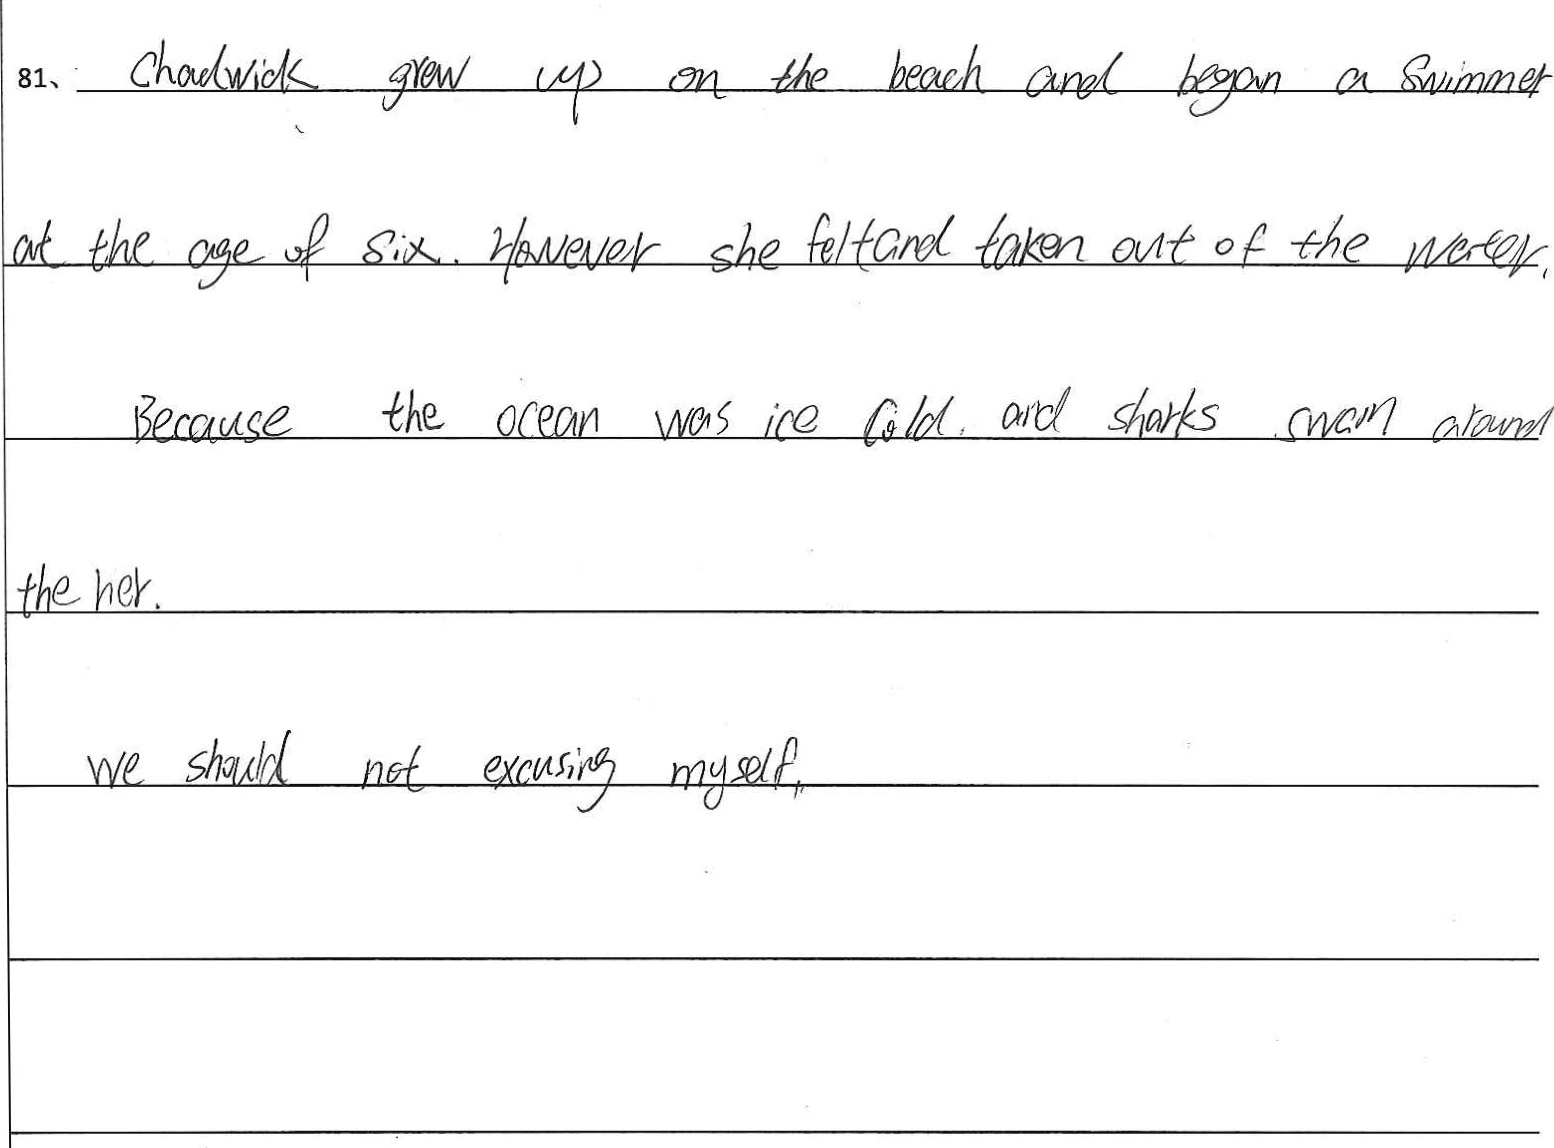 81、 Chadwick grew up on the beach and began a swimmer
at the age of six. However she feltand taken out of the water.
Because the ocean was ice cold. and sharks swam around
the her.
we should not excusing myself.